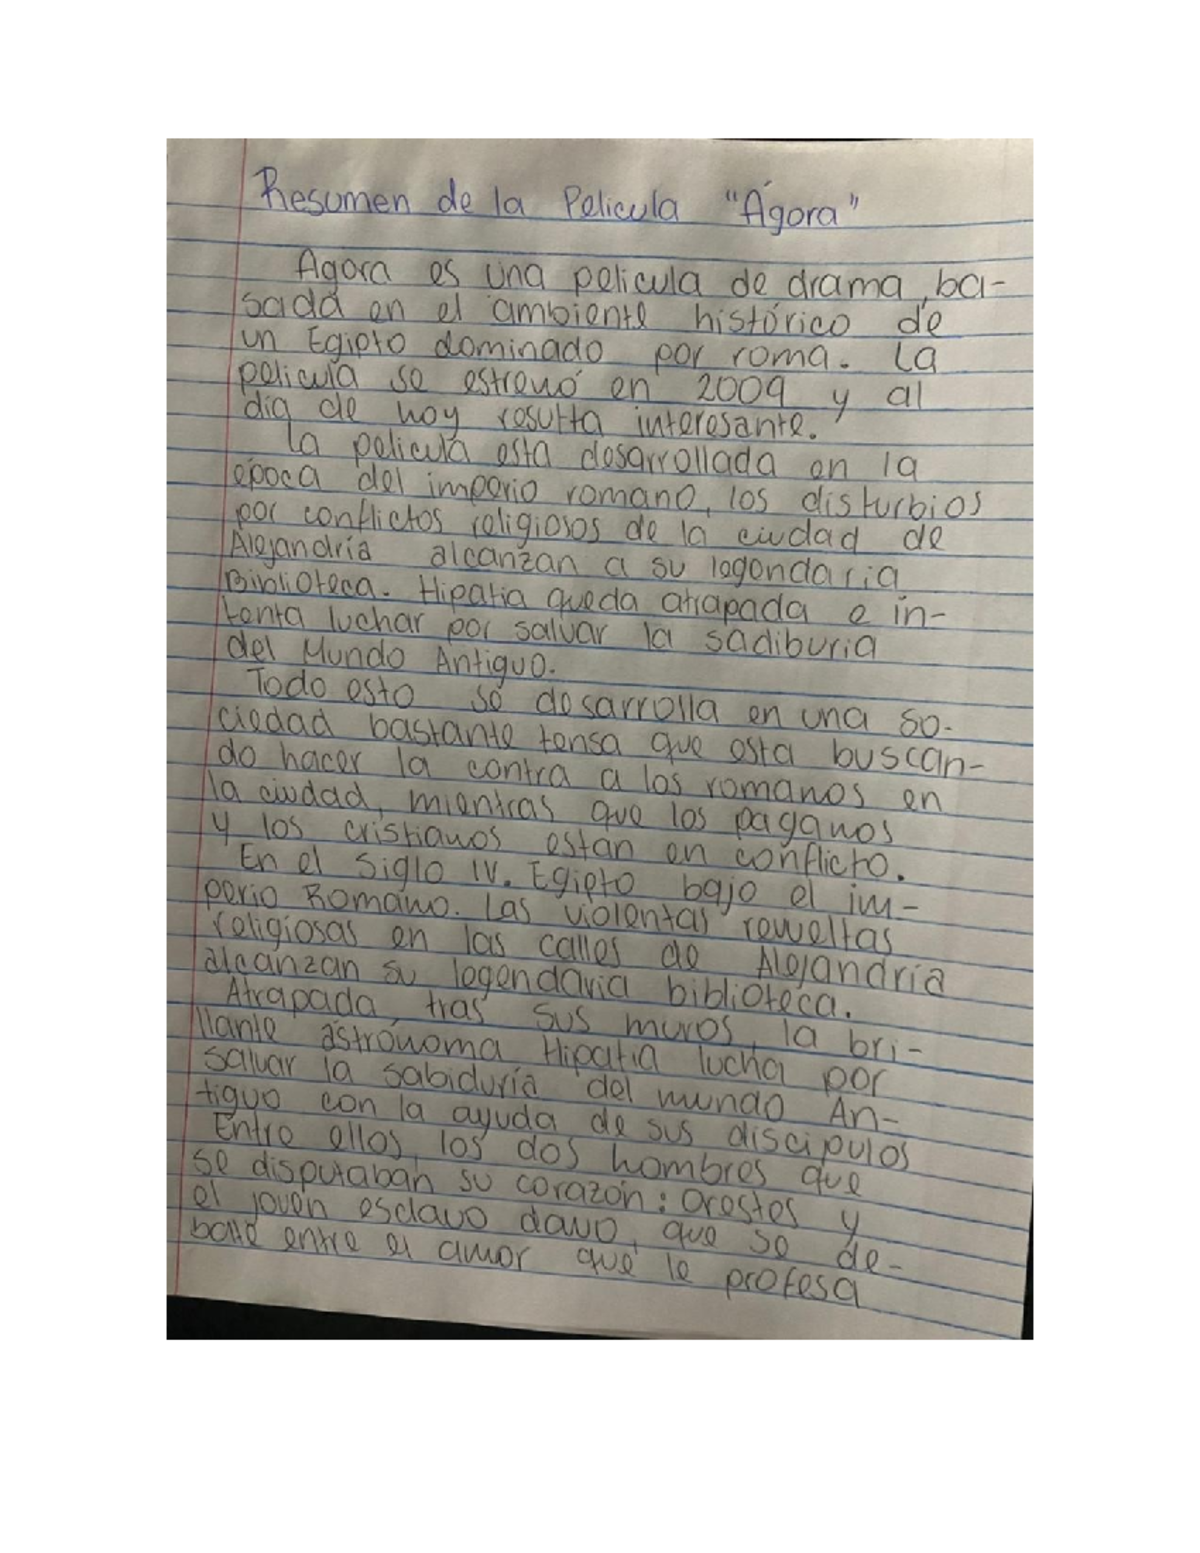 Resumen de la Pelicula "Ágora"
Agora es una pelicula de drama, ba-
sada en el ambiente histórico de
un Egipto dominado por roma. La
pelicula se estrenó en 2009 y al
dia de hoy resulta interesante.
La pelicula esta desarrollada en la
época del imperio romano, los disturbios
por conflictos religiosos de la ciudad de
Alejandría alcanzan a su legendaria
Biblioteca. Hipatia queda atrapada e in-
tenta luchar por salvar la sadiburia
del Mundo Antiguo.
Todo esto se desarrolla en una so-
ciedad bastante tensa que esta buscan-
do hacer la contra a los romanos en
la ciudad, mientras que los paganos
y los cristianos estan en conflicto.
En el siglo IV. Egipto bajo el im-
perio Romano. Las violentas revueltas
religiosas en las calles de Alejandría
alcanzan su legendaria biblioteca.
Atrapada tras sus muros, la bri-
llante astrónoma Hipatia lucha por
salvar la sabiduría del mundo An-
tiguo con la ayuda de sus discipulos
Entre ellos, los dos hombres que
se disputaban su corazón: Orestes y
el joven esclavo davo, que se de-
bate entre el amor que le profesa